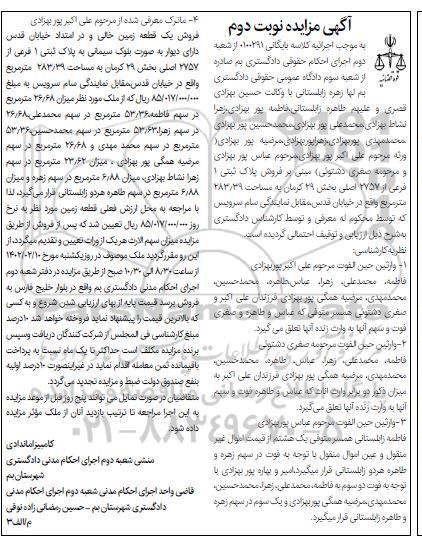 آگهی مزایده نوبت دوم
به موجب اجرائیه کلاسه بایگانی ۰۱۰۰۲۹۱ از شعبه
دوم اجرای احکام حقوقی دادگستری بم صادره
از شعبه سوم دادگاه عمومی حقوقی دادگستری
بم لها زهره زابلستانی با وکالت حسین بهزادی
قصری و علیهم طاهره زابلستانی،فاطمه پور بهزادی،زهرا
نشاط بهزادی،محمدعلی پور بهزادی،محمدحسین پور بهزادی
،محمدمهدی پوربهزادی،زهراپوربهزادی،مرضیه پور بهزادی(
ورثه مرحوم علی اکبر پور بهزادی،مرحوم عباس پور بهزادی
و مرحومه صغری دشتوئی) مبنی بر فروش پلاک ثبتی ۱
فرعی از ۲۷۵۷ اصلی بخش ۲۹ کرمان به مساحت ۲۸۳/۳۹
مترمربع واقع در خیابان قدس،مقابل نمایندگی سام سرویس
که توسط محکوم له معرفی و توسط کارشناس دادگستری
به‌شرح ذیل ارزیابی و توقیف احتمالی گردیده است.
نظریه کارشناسی:
۱- وارثین حین الفوت مرحوم علی اکبر پوربهزادی
فاطمه، محمدعلی، زهرا، عباس،طاهره، محمدحسین،
محمدمهدی، مرضیه همگی پور بهزادی فرزندان علی اکبر و
صغری دشتوئی همسر متوفی که عباس و طاهره و صغری
فوت و سهم آنها به وارث زنده آنها تعلق می گیرد.
۲-وارثین حین الفوت مرحومه صغری دشتوئی
فاطمه، محمدعلی، زهرا، عباس، طاهره، محمدحسین،
محمدمهدی، مرضیه همگی پور بهزادی فرزندان علی اکبر به
میزان ذکور دو برابر وارث اناث که عباس و طاهره فوت و سهم
آنها به وارث زنده آنها تعلق می‌گیرد.
۳-وارثین حین الفوت مرحوم عباس پور بهزادی
فاطمه زابلستانی همسر متوفی یک هشتم از قیمت اموال غیر
منقول و عین اموال منقول با توجه به فوت در سهم زهره و
طاهره هردو زابلستانی قرار میگیرد،امیر و بهاره پور بهزادی با
توجه به فوت دو سوم به فاطمه،محمدعلی،زهرا، محمدحسین،
محمدمهدی،مرضیه همگی پوربهزادی و یک سوم در سهم زهره
و طاهره زابلستانی قرار میگیرد.
۴- ماترک معرفی شده از مرحوم علی اکبر پور بهزادی
فروش یک قطعه زمین خالی و در امتداد خیابان قدس
دارای دیوار به صورت بلوک سیمانی به پلاک ثبتی ۱ فرعی از
۲۷۵۷ اصلی بخش ۲۹ کرمان به مساحت ۲۸۳/۳۹ مترمربع
واقع در خیابان قدس،مقابل نمایندگی سام سرویس به مبلغ
۸۵/۰۱۷/۰۰۰/۰۰۰ ریال که از ملک مورد نظر میزان ۲۶/۶۸ مترمربع
در سهم فاطمه،۵۳/۳۶ مترمربع در سهم محمدعلی،۲۶/۶۸
مترمربع در سهم زهرا،۵۳/۳۶ مترمربع در سهم محمدحسین،۵۳/۳۶
مترمربع در سهم محمد مهدی و ۲۶/۶۸ مترمربع در سهم
مرضیه همگی پور بهزادی ، میزان ۲۳/۶۲ مترمربع در سهم
زهرا نشاط بهزادی، میزان ۶/۸۸ مترمربع در سهم زهره و میزان
۶/۸۸ مترمربع در سهم طاهره هردو زابلستانی قرار می‌گیرد، لذا
با مراجعه به محل ارزش فعلی قطعه زمین مورد نظر به نرخ
روز ۸۵/۰۱۷/۰۰۰/۰۰۰ ریال تعیین شد که پس از فروش از طریق
مزایده میزان سهم الارث هر یک از وراث تعیین و تقدیم میگردد.از
این رو مقررگردید ملک موصوف در روزیکشنبه مورخ ۱۴۰۲/۰۲/۱۰
از ساعت ۸/۳۰ الی ۱۰/۳۰ صبح از طریق مزایده در دفتر شعبه دوم
اجرای احکام مدنی دادگستری بم واقع در بلوار خلیج فارس به
فروش برسد قیمت پایه از بهای ارزیابی شدن شروع و به کسی
که بالاترین قیمت را پیشنهاد نماید فروخته خواهد شد ۱۰درصد
مبلغ کارشناسی فی المجلس از شرکت کنندگان دریافت وسپس
برنده مزایده مکلف است حداکثر تا یک ماه نسبت به پرداخت
باقیمانده ثمن معامله اقدام نماید در غیراینصورت ۱۰درصد اولیه
بنفع صندوق دولت ضبط و مزایده تجدید می‌گردد.
متقاضیان در صورت تمایل می توانند پنج روز قبل از موعد مزایده
به این اجرا مراجعه تا ترتیب بازدید آنان از ملک مؤثر مزایده
داده شود.
کامبیز اماندادی
منشی شعبه دوم اجرای احکام مدنی دادگستری
شهرستان بم
قاضی واحد اجرای احکام مدنی شعبه دوم اجرای احکام مدنی
دادگستری شهرستان بم - حسین رمضانی زاده نوقی
م/الف۳